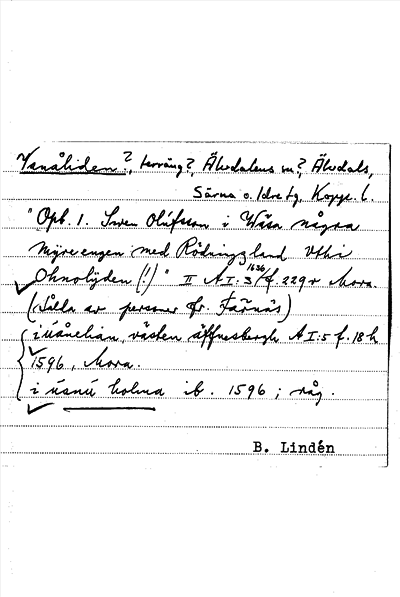 Vanåliden?, terräng?, Älvdalens sn?, Älvdals,
Särna o. Idre tg, Kopp. l.
"Opb. 1. Swen Olufsson i Wåsa några
Myreengen med Rödningzland Vthi
Ohnolijden (!)" II A I:3 1636 f. 229 v Mora.
(Källa av personer fr. Färnäs)
i Uånelian, västen Äffuesbergh A I:5 f. 18 h
1596, Mora.
i Usnú holma ib. 1596; råg.
B. Lindén